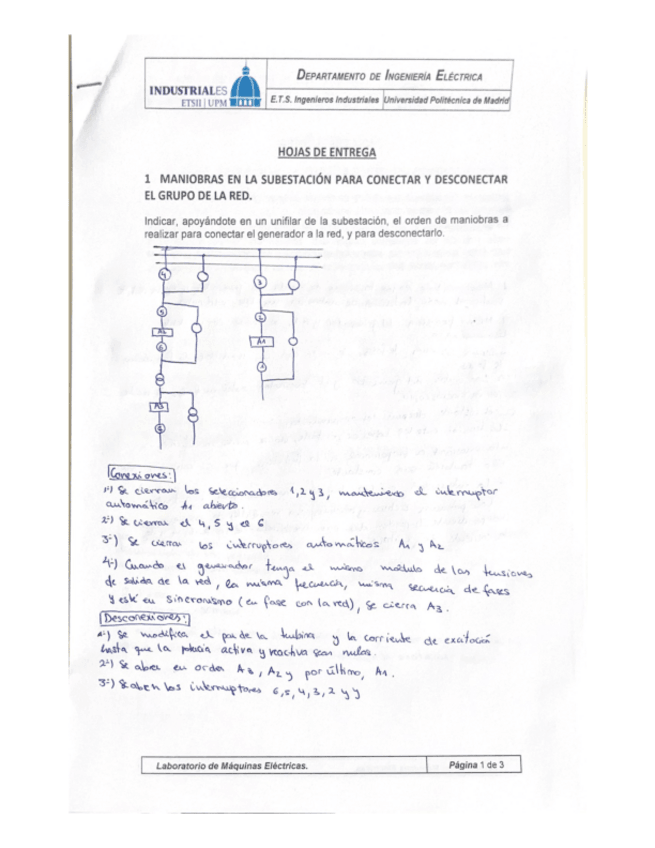 INDUSTRIALES
ETSII | UPM
DEPARTAMENTO DE INGENIERÍA ELÉCTRICA
E.T.S. Ingenieros Industriales Universidad Politécnica de Madrid
HOJAS DE ENTREGA
1 MANIOBRAS EN LA SUBESTACIÓN PARA CONECTAR Y DESCONECTAR
EL GRUPO DE LA RED.
Indicar, apoyándote en un unifilar de la subestación, el orden de maniobras a
realizar para conectar el generador a la red, y para desconectarlo.
4 3
5 2
A2 A1
6
A3
Conexiones:
1º) Se cierran los seleccionadores 1,2 y 3, manteniendo el interruptor
automático A1 abierto.
2º) Se cierran el 4, 5 y el 6
3º) Se cierran los interruptores automáticos A1 y A2
4º) Cuando el generador tenga el mismo módulo de las tensiones
de salida de la red, la misma frecuencia, misma secuencia de fases
y esté en sincronismo (en fase con la red), se cierra A3.
Desconexiones:
1º) Se modifica el par de la turbina y la corriente de excitación
hasta que la potencia activa y reactiva sean nulas.
2º) Se abren en orden A3, A2 y por último, A1.
3º) Se abren los interruptores 6,5,4,3,2 y
Laboratorio de Máquinas Eléctricas.
Página 1 de 3